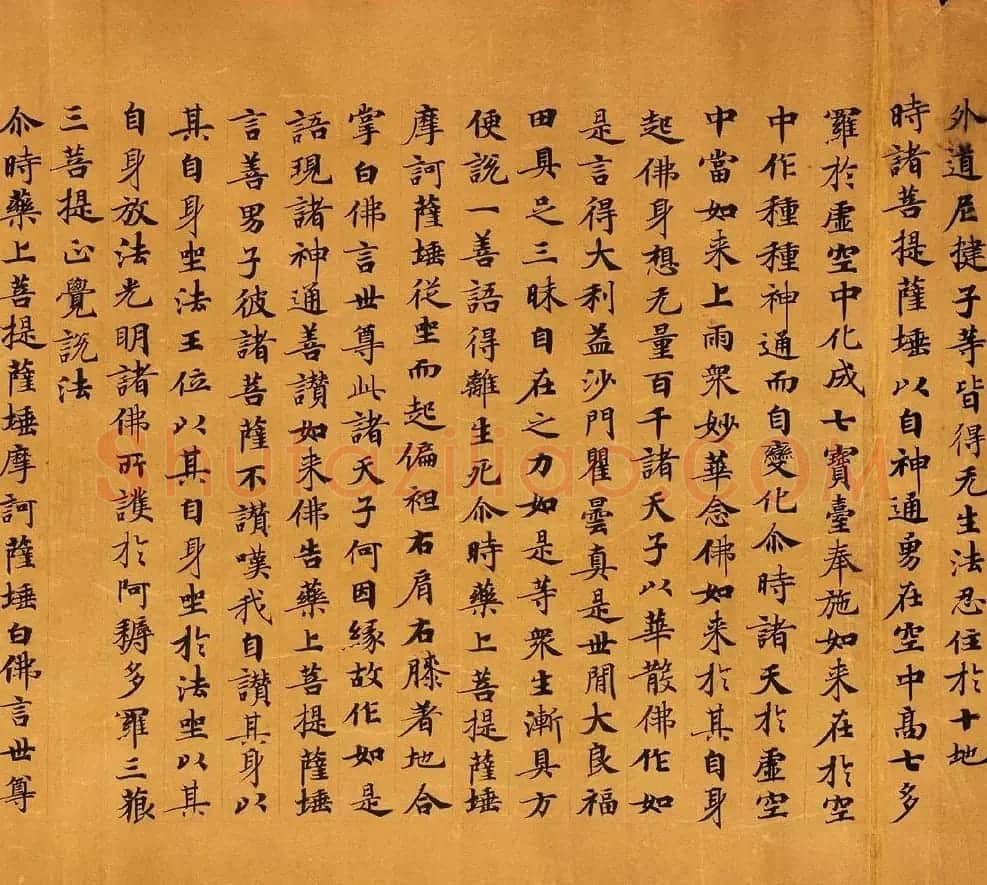 外道尼揵子等皆得无生法忍住於十地
時諸菩提薩埵以自神通勇在空中高七多
羅於虛空中化成七寶臺奉施如来在於空
中作種種神通而自變化尒時諸天於虛空
中當如来上雨衆妙華念佛如来於其自身
起佛身想无量百千諸天子以華散佛作如
是言得大利益沙門瞿曇真是世間大良福
田具足三昧自在之力如是等衆生漸具方
便説一善語得離生死尒時藥上菩提薩埵
摩訶薩埵從坐而起偏袒右肩右膝著地合
掌白佛言世尊此諸天子何因緣故作如是
語現諸神通善讃如来佛告藥上菩提薩埵
言善男子彼諸菩薩不讃嘆我自讃其身以
其自身坐法王位以其自身坐於法坐以其
自身放法光明諸佛所護於阿耨多羅三藐
三菩提正覺説法
尒時藥上菩提薩埵摩訶薩埵白佛言世尊
Shufaziliao.com